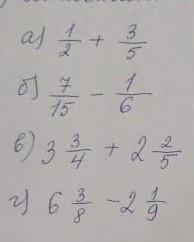 а) 1/2 + 3/5
б) 7/15 - 1/6
в) 3 3/4 + 2 2/5
г) 6 3/8 - 2 1/9